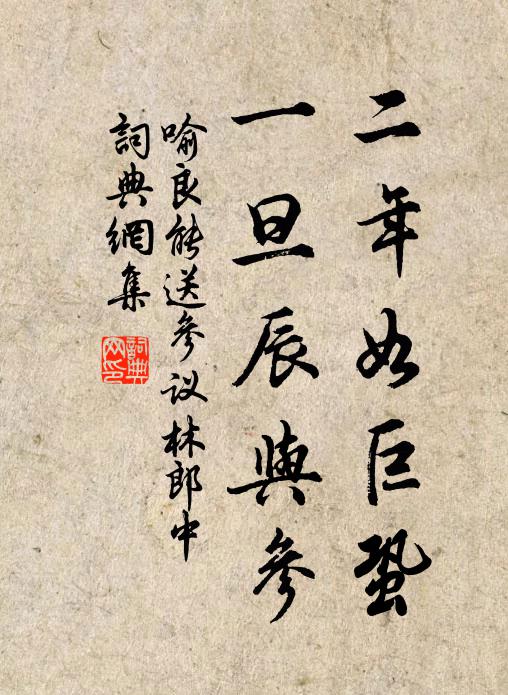 二年如巨蛩
一旦辰與參
喻良能送參议林郎中
詞典網集
詞典网印